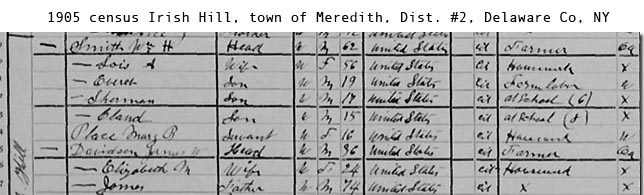 1905 census Irish Hill, town of Meredith, Dist. #2, Delaware Co, NY
Smith Wm H Head W M 62 United States cit Farmer
— Lois A Wife W F 56 United States cit Housework X
— Everet Son W M 19 United States cit Farm labor W
— Sherman Son W M 17 United States cit at School (6) X
— Claud Son W M 15 United States cit at School (8) X
Place Mary B Servant W F 16 United States cit Housework W
Davidson James W Head W M 36 United States cit Farmer
— Elizabeth M Wife W F 24 United States cit Housework X
— James Father W M 74 United States cit X X
Hill